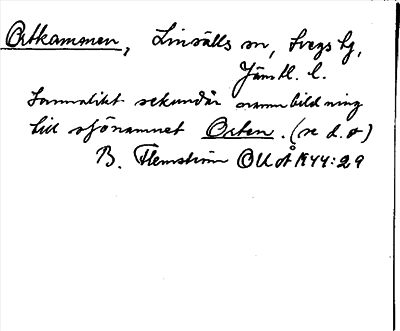 Ortkammen, Linsälls sn, Svegs tg,
Jämtl. l.
Sannolikt sekundär ortnamnbildning
till sjönamnet Orten. (se d. o)
B. Flemström OUÅ 1944:29